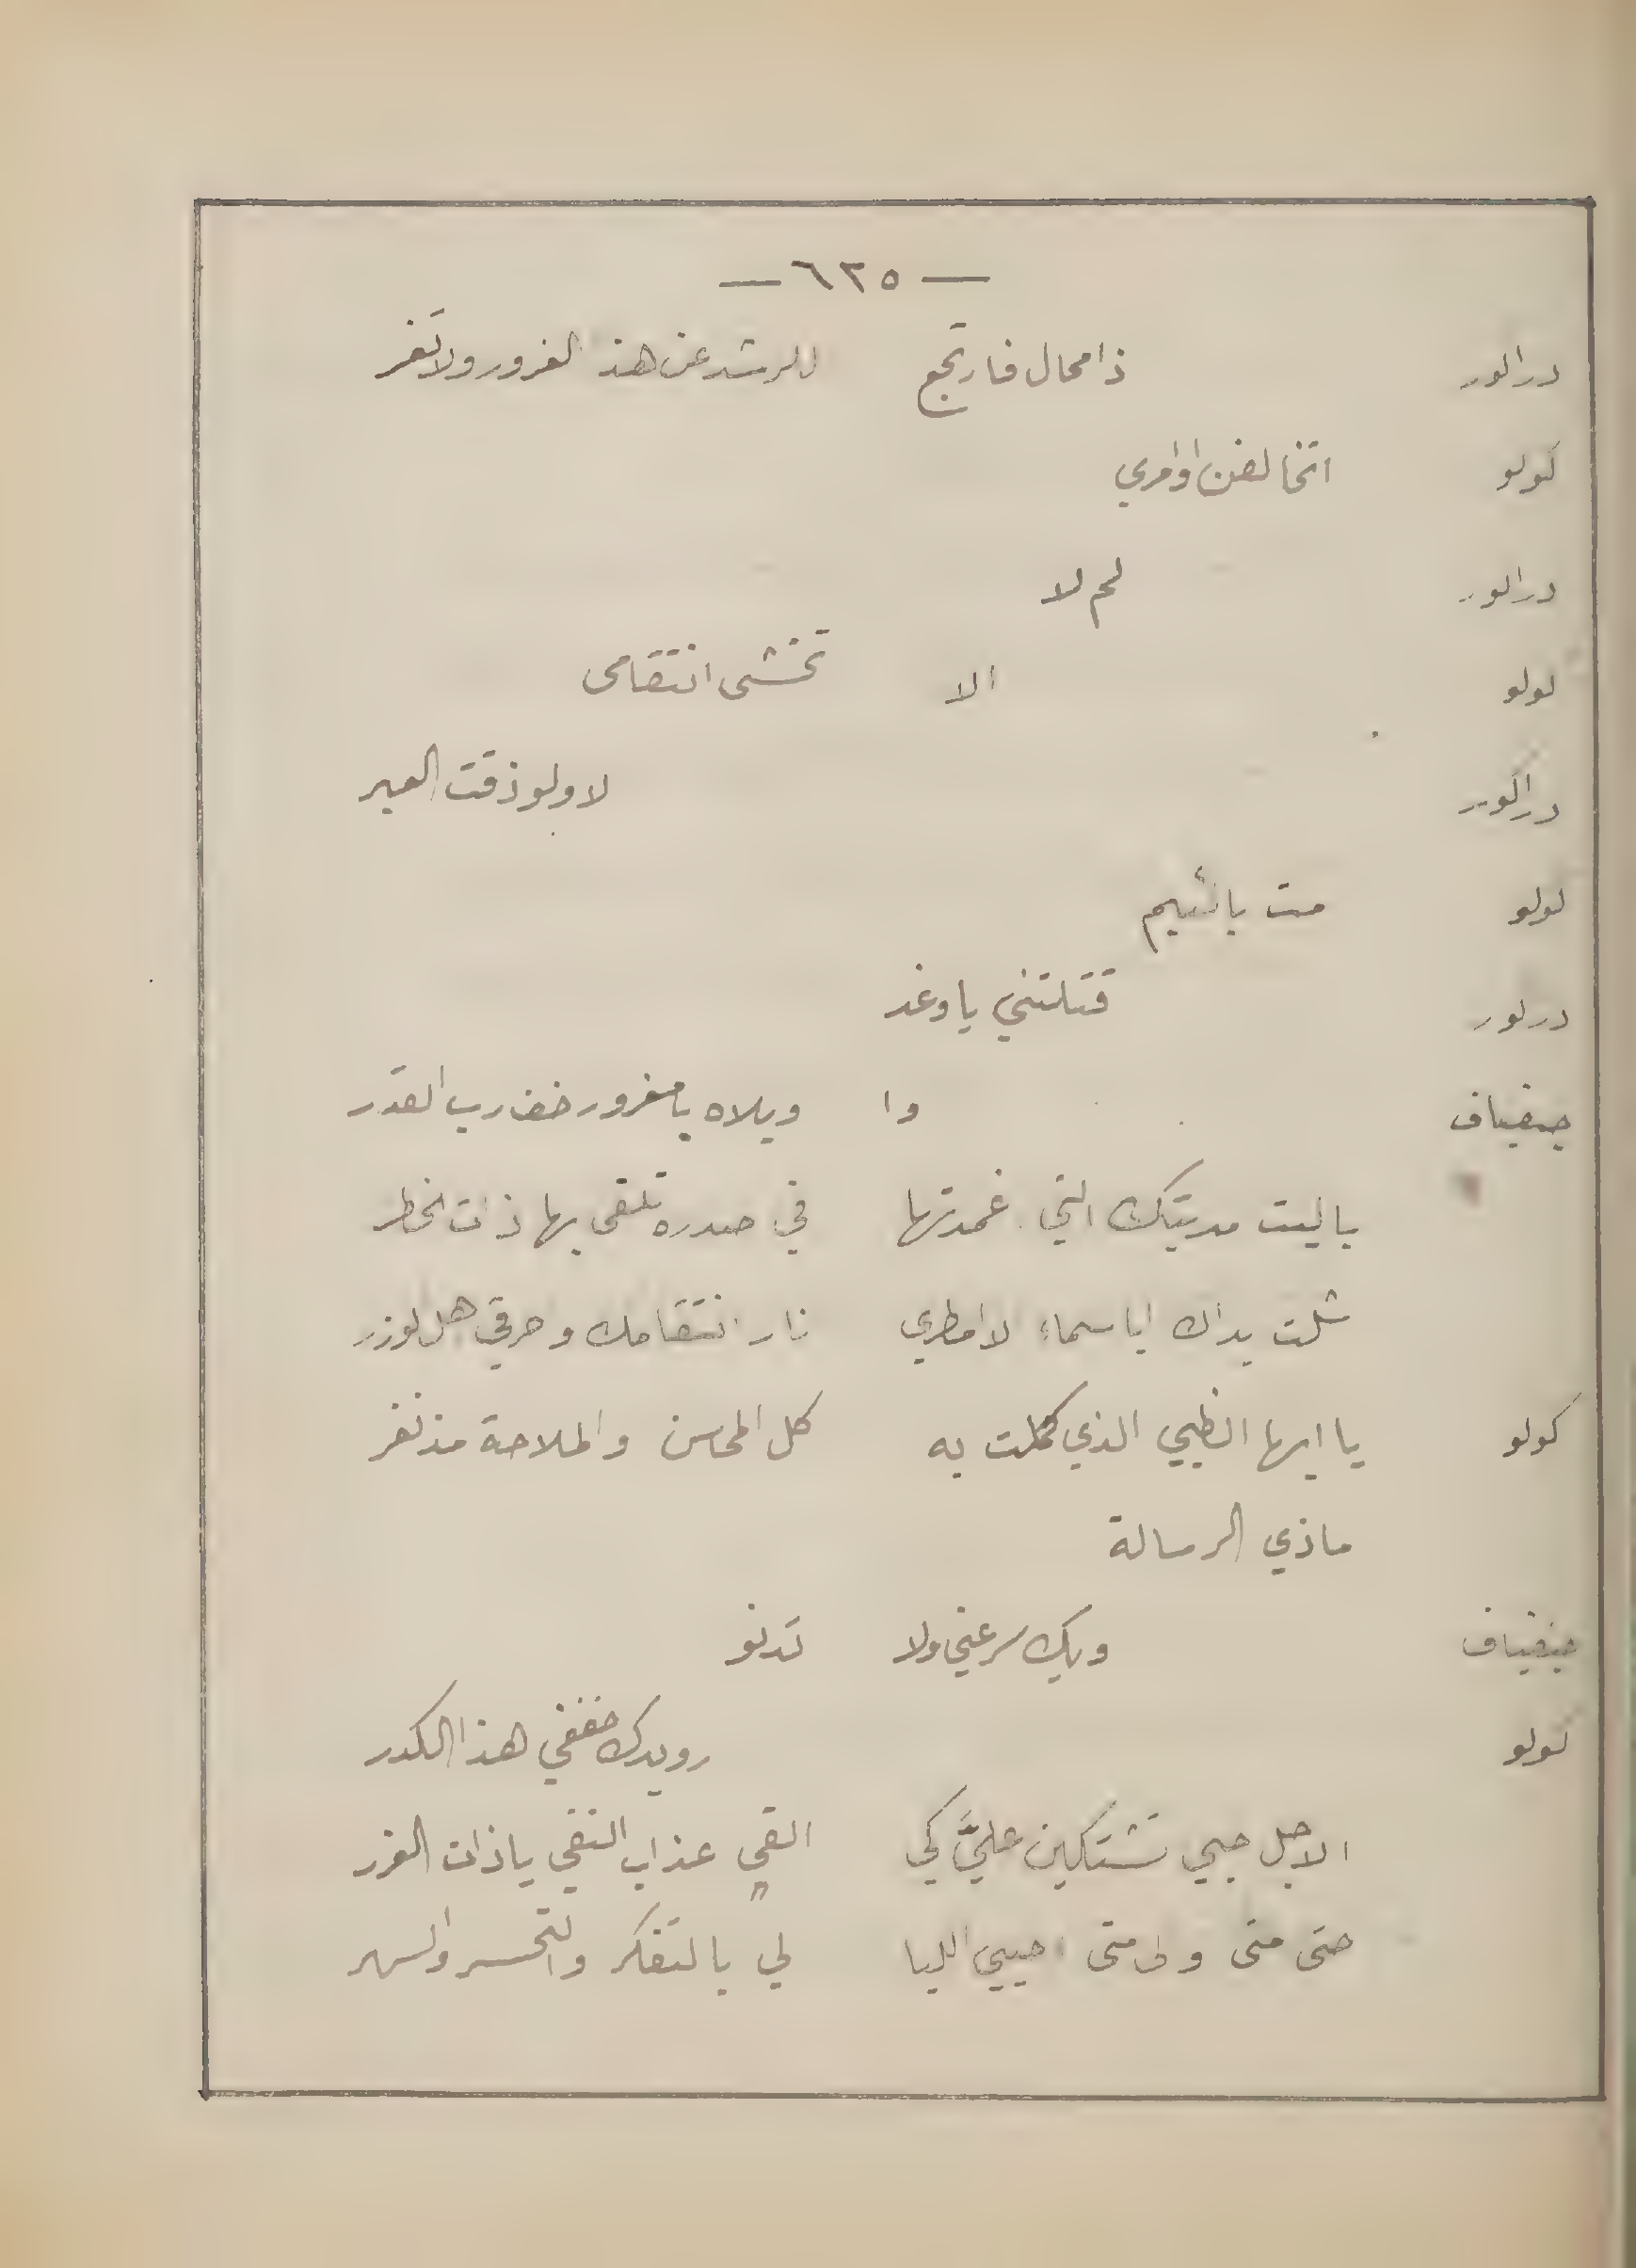 — ٦٢٥ —
درالور ذا محال فارتجع للرشد عن هذ الغرور ولا تغر
كولو اتخالفن اوامري
درالور لم لا
لولو الا تخشى انتقامى
درالور لا ولو ذقت العبر
لولو مت يا لئيم
درلور قتلتني يا وغد
جنفياف وا ويلاه يا مغرور خف رب القدر
يا ليت مديتك التي غمدتها في صدره تلقى بها ذات الخطر
شلت يداك ايا سماء لا امطري نار انتقامك وحرقي هل لوزر
كولو يا ايها الظبي الذي كملت به كل المحاسن والملاحة مذ نفر
ما ذي الرسالة
جنفياف ويك سر عني ولا تدنو
لولو رويدك خففي هذا الكدر
الاجل حبي تشتكين عليَّ كي القى عذاب النفي يا ذات الغرر
حتى متى ولى متى احيي الليا لي بالتفكر والتحسر والسهر